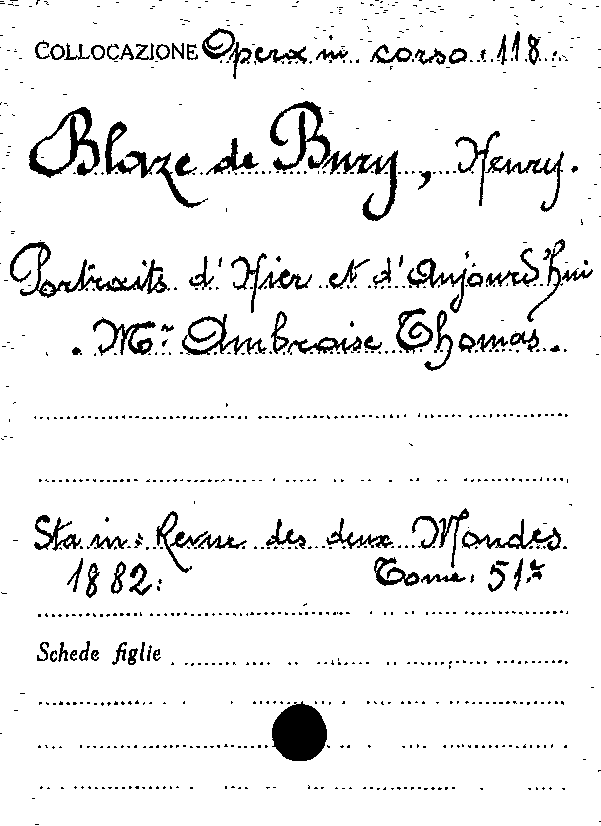 COLLOCAZIONE Opera in corso. 118.
Blaze de Bury, Henry.
Portraits d'Hier et d'Aujourd'hui
. Mr Ambroise Thomas.
Sta in: Revue des deux Mondes
1882. Tome. 51.
Schede figlie